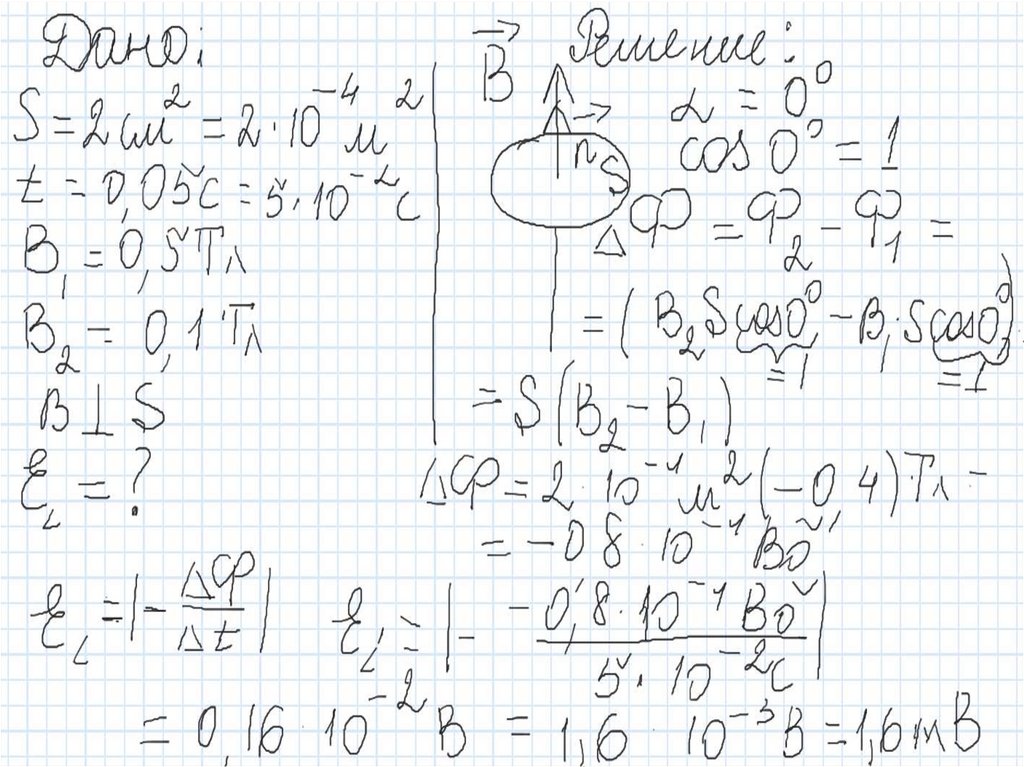 Дано:
S = 2 см² = 2·10⁻⁴ м²
t = 0,05с = 5·10⁻² с
B₁ = 0,5 Тл
B₂ = 0,1 Тл
B ⊥ S
Ɛᵢ = ?
Ɛᵢ = |- ΔФ/Δt|
Решение:
B⃗
n⃗
S
α = 0⁰
cos 0⁰ = 1
ΔФ = Ф₂ - Ф₁ =
= (B₂ S cos0⁰ - B₁ S cos0⁰)
=1 =1
= S (B₂ - B₁)
ΔФ = 2·10⁻⁴ м² (-0,4)·Тл =
= -0,8·10⁻⁴ Вб
Ɛᵢ = |- -0,8·10⁻⁴ Вб / 5·10⁻² с|
= 0,16·10⁻² В = 1,6·10⁻³ В = 1,6 mВ